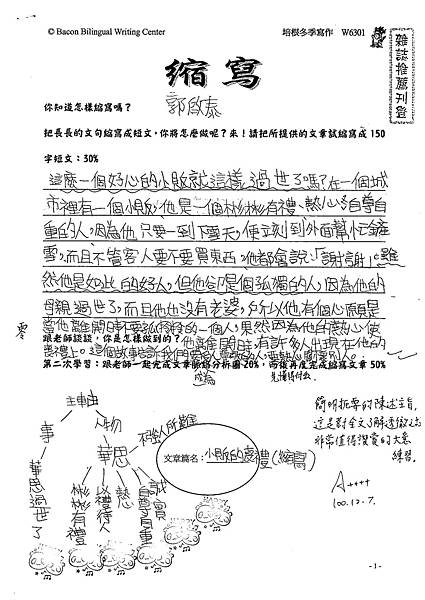 © Bacon Bilingual Writing Center
培根冬季寫作 W6301
雜誌推薦刊登
縮寫
你知道怎樣縮寫嗎？
郭啟泰
把長長的文句縮寫成短文，你將怎麼做呢？來！請把所提供的文章試縮寫成 150
字短文：30%
這麼一個好心的小販就這樣過世了嗎？在一個城
市裡有一個小販，他是一個彬彬有禮、熱心、自尊自
重的人，因為他只要一到下雪天，便立刻到外面幫忙鏟
雪，而且不管客人要不要買東西，他都會說：「謝謝」。雖
然他是如此的好人，但他卻是個孤獨的人，因為他的
母親過世了，而且他也沒有老婆，所以他有個心願是
當他離開時不要孤伶伶的一個人，果然因為他的熱心使
跟老師談談，你是怎樣做到的？
他離開時，有許多人出現在他的
喪禮上。這個故事告訴我們
第二次學習：跟老師一起完成文章關係分析圖 20%，而後再度完成縮寫文章 50%
主軸
事
華思過世了
人物
華思
彬彬有禮
以禮待人
熱
自尊自重
誠實
文章篇名：小販的喪禮（縮寫）
簡明扼要的陳述主旨，
這是對全文了解透徹之
非常值得讚賞的大意
練習。
A++++
100.12.7.
-1-